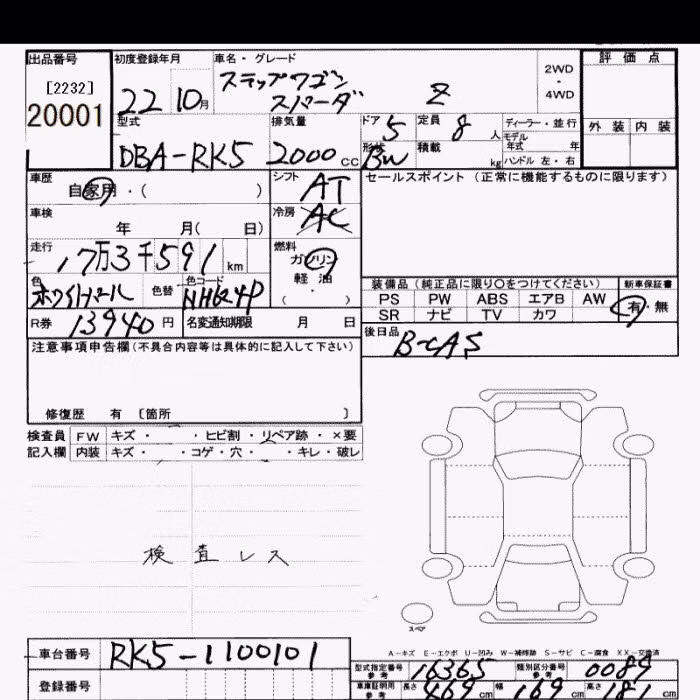 出品番号
[2232]
20001
初度登録年月
22 10月
車名・グレード
ステップワゴン
スパーダ Z
2WD
・
4WD
評価点
外装 内装
型式
DBA-RK5
排気量
2000 cc
ドア
5
定員
8 人
形状
BW
積載
kg
ディーラー・並行
モデル
年式 年
ハンドル 左・右
車歴
自家用・( )
シフト
AT
セールスポイント (正常に機能するものに限ります)
車検
年 月( 日)
冷房
AC
走行
17万3千591 km
燃料
ガソリン
軽油
( ・ )
色
ホワイトパール
色替
色コード
NH624P
装備品 (純正品に限り○をつけてください)
新車保証書
PS PW ABS エアB AW
SR ナビ TV カワ
有・無
R券 13940 円
名変通知期限 月 日
後日品
B-CAS
注意事項申告欄 (不具合内容等は具体的に記入して下さい)
修復歴 有 〔箇所 〕
検査員
記入欄
FW キズ・ ・ヒビ割・リペア跡・×要
内装 キズ・ ・コゲ・穴・ ・キレ・破レ
検査レス
スペア
A-キズ E-エクボ U-凹み W-補修跡 S-サビ C-腐食 XX-交換済
車台番号 RK5-1100101
登録番号
型式指定番号
参考
16365
類別区分番号
参考
0089
車庫証明用
参考
長さ 469 cm 幅 169 cm 高さ 181 cm